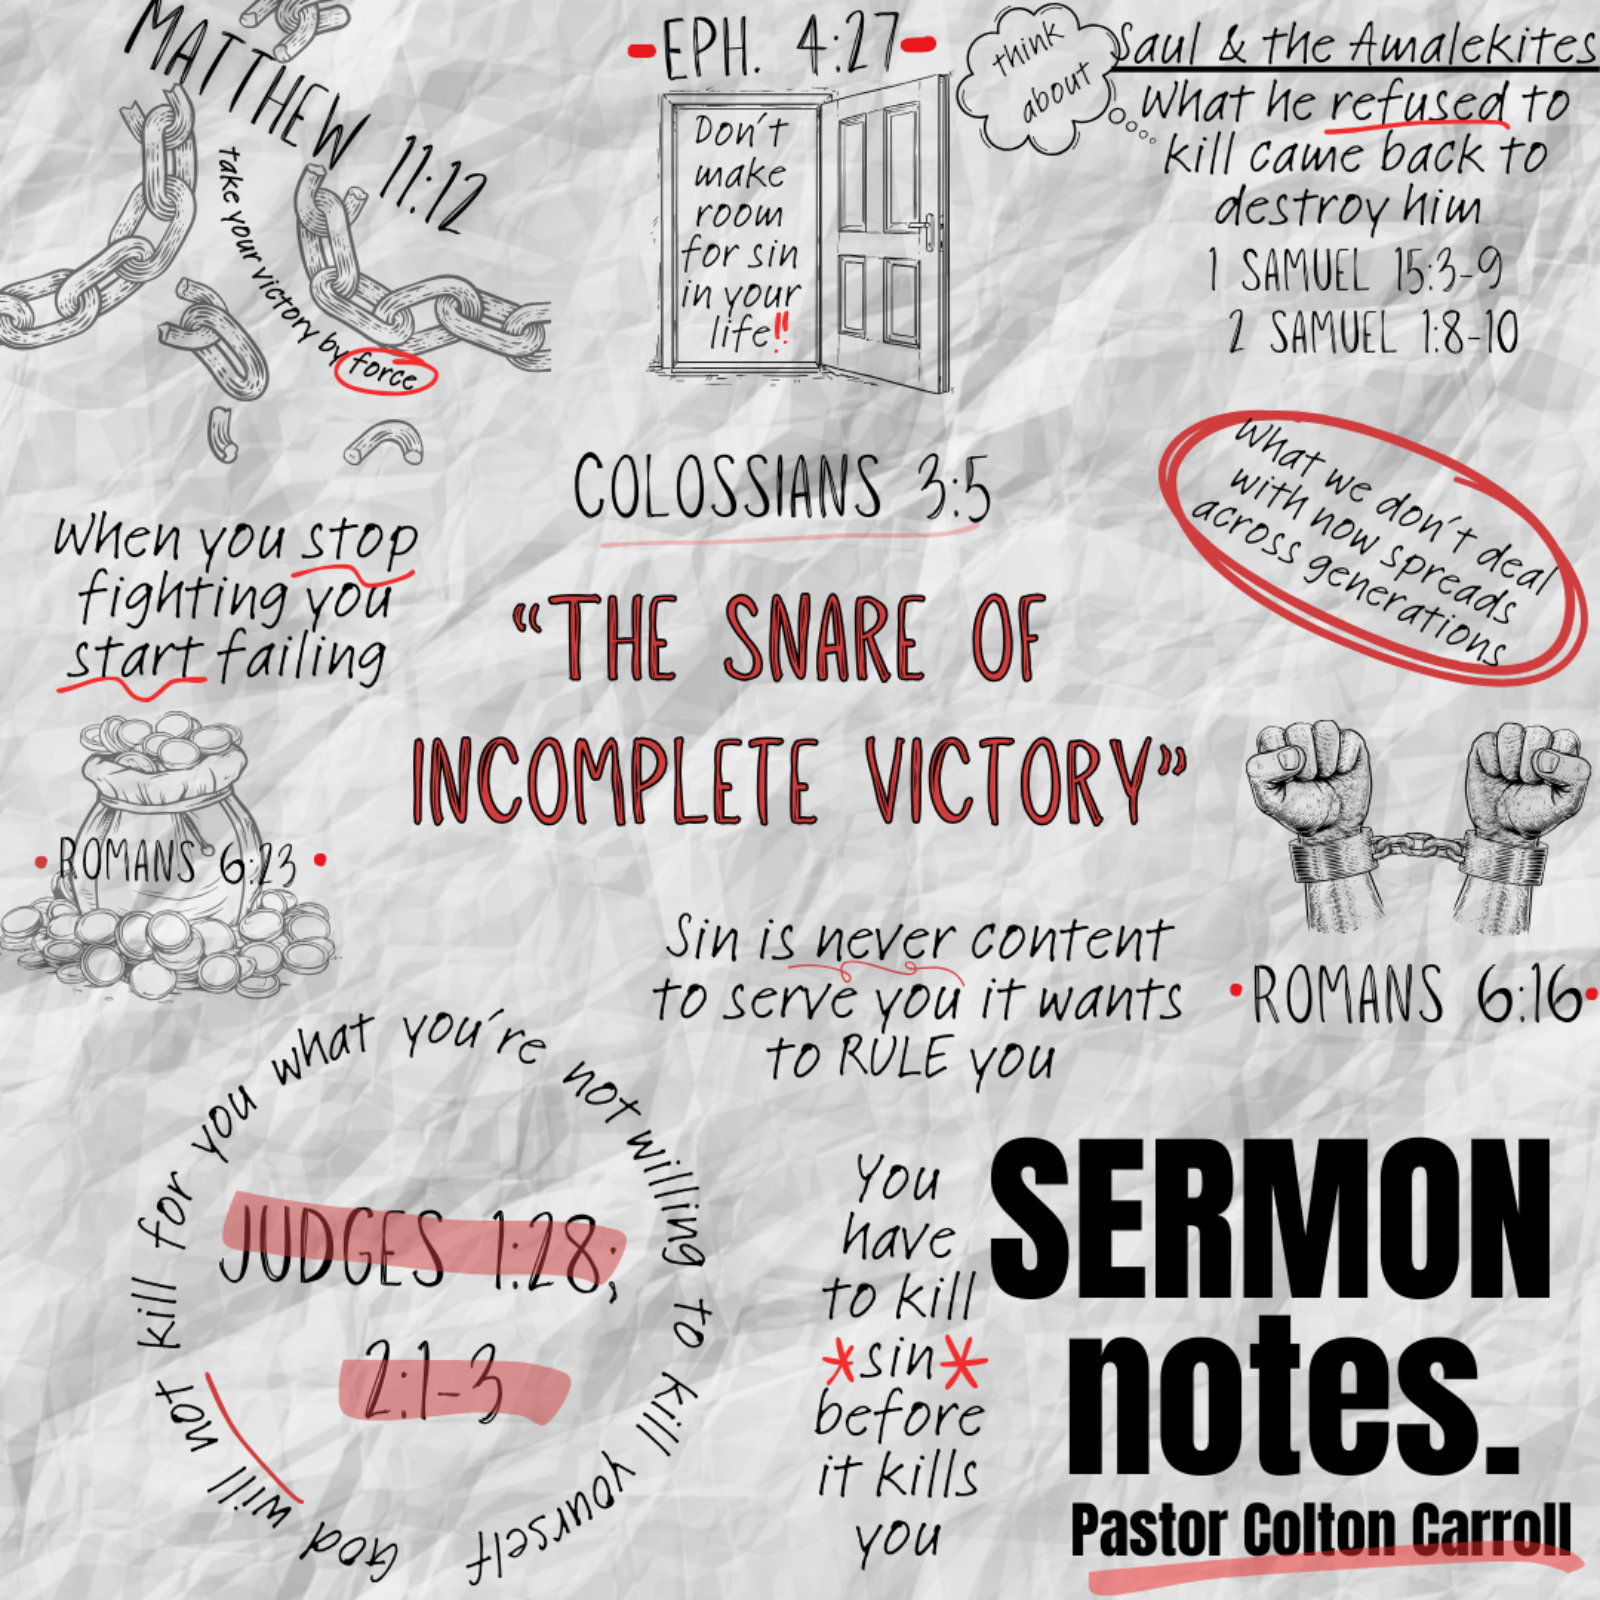 MATTHEW 11:12
take your victory by force
-EPH. 4:27-
Don't
make
room
for sin
in your
life!!
think
about
Saul & the Amalekites
What he refused to
kill came back to
destroy him
1 SAMUEL 15:3-9
2 SAMUEL 1:8-10
COLOSSIANS 3:5
What we don't deal
with now spreads
across generations
When you stop
fighting you
start failing
"THE SNARE OF
INCOMPLETE VICTORY"
•ROMANS 6:23•
Sin is never content
to serve you it wants
to RULE you
•ROMANS 6:16•
God will not kill for you what you're not willing to kill yourself
JUDGES 1:28;
2:1-3
You
have
to kill
*sin*
before
it kills
you
SERMON
notes.
Pastor Colton Carroll